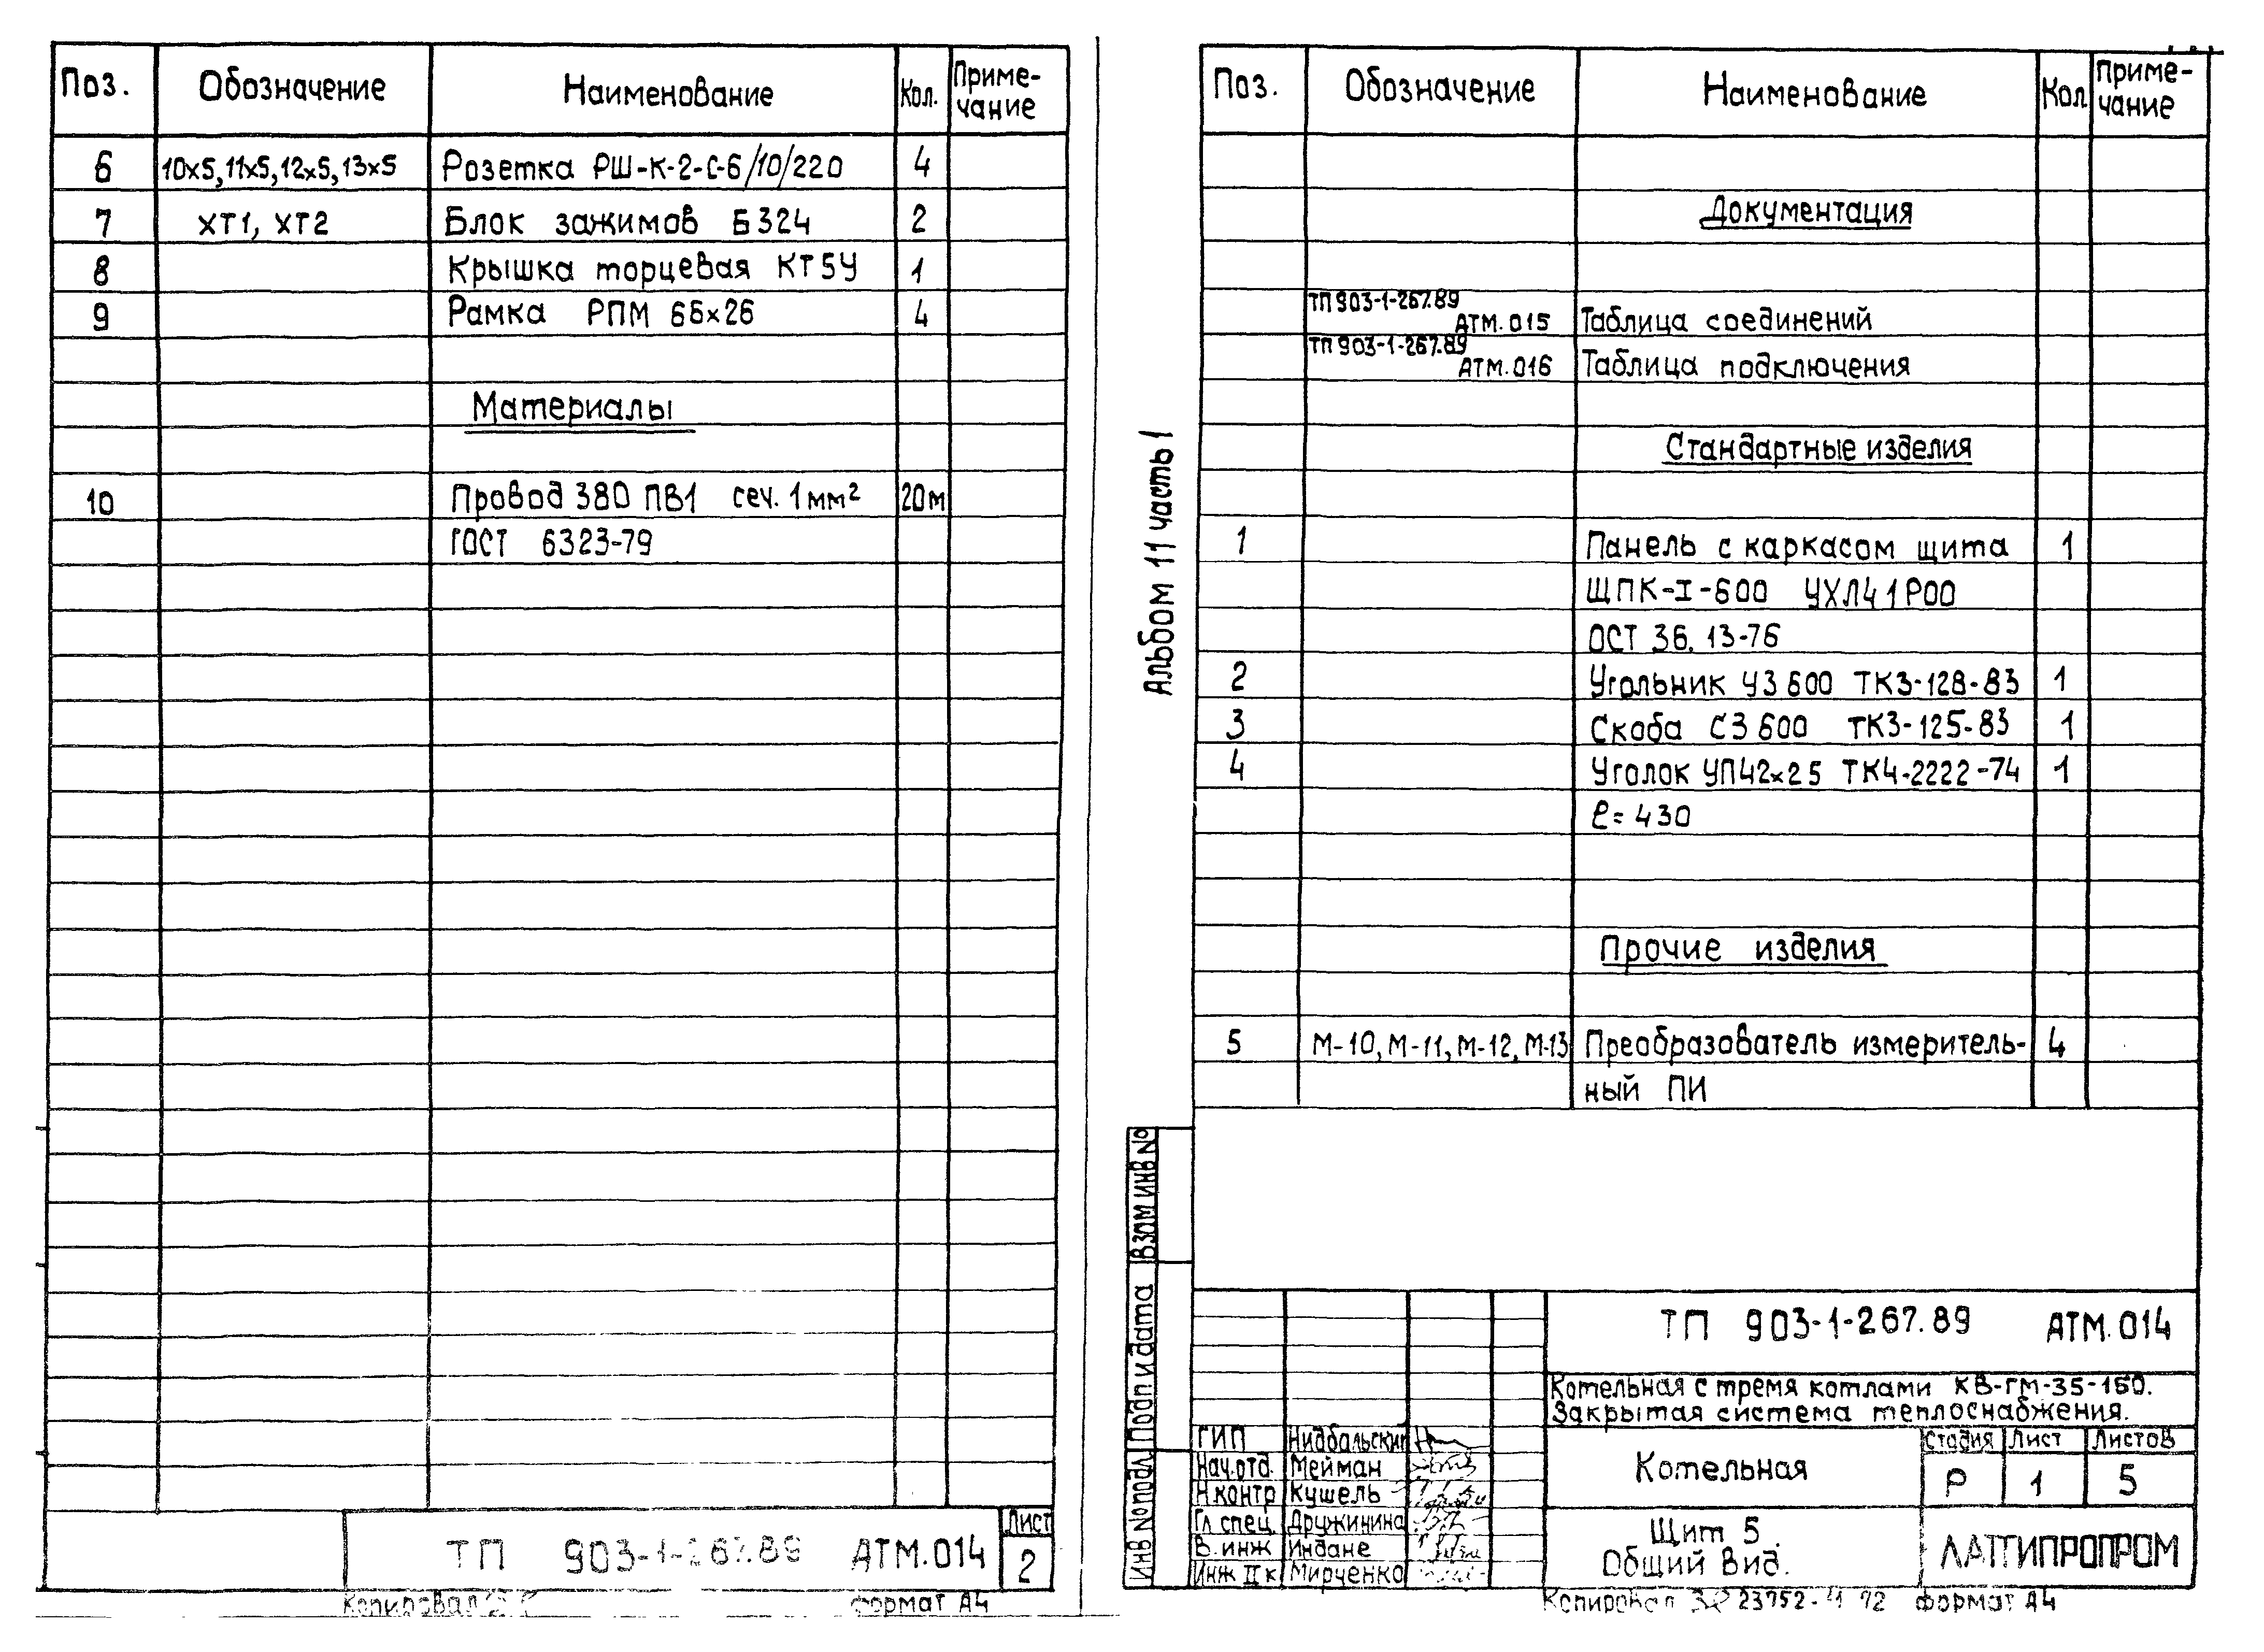 Поз. Обозначение Наименование Кол. Приме-
чание
6 10х5, 11х5, 12х5, 13х5 Розетка РШ-К-2-С-6/10/220 4
7 ХТ1, ХТ2 Блок зажимов Б324 2
8 Крышка торцевая КТ5У 1
9 Рамка РПМ 66х26 4
Материалы
10 Провод 380 ПВ1 сеч. 1мм² 20м
ГОСТ 6323-79
ТП 903-1-267.89 АТМ.014
Лист
2
Копировал
формат А4
Альбом 11 часть 1
Поз. Обозначение Наименование Кол Приме-
чание
Документация
ТП 903-1-267.89
АТМ.015 Таблица соединений
ТП 903-1-267.89
АТМ.016 Таблица подключения
Стандартные изделия
1 Панель с каркасом щита 1
ЩПК-I-600 УХЛ4 1Р00
ОСТ 36.13-76
2 Угольник УЗ 600 ТК3-128-83 1
3 Скоба СЗ 600 ТК3-125-83 1
4 Уголок УП42х25 ТК4-2222-74 1
ℓ=430
Прочие изделия
5 М-10, М-11, М-12, М-13 Преобразователь измеритель- 4
ный ПИ
Взам инв №
Подп и дата
Инв № подл.
ТП 903-1-267.89 АТМ.014
Котельная с тремя котлами КВ-ГМ-35-150.
Закрытая система теплоснабжения.
ГИП Нидбальский
Нач.отд. Мейман
Н контр Кушель
Гл спец. Дружинина
В. инж Индане
Инж II к Мирченко
Котельная
Стадия Лист Листов
Р 1 5
Щит 5.
Общий вид.
ЛАТГИПРОПРОМ
Копировал 23752- 92 формат А4